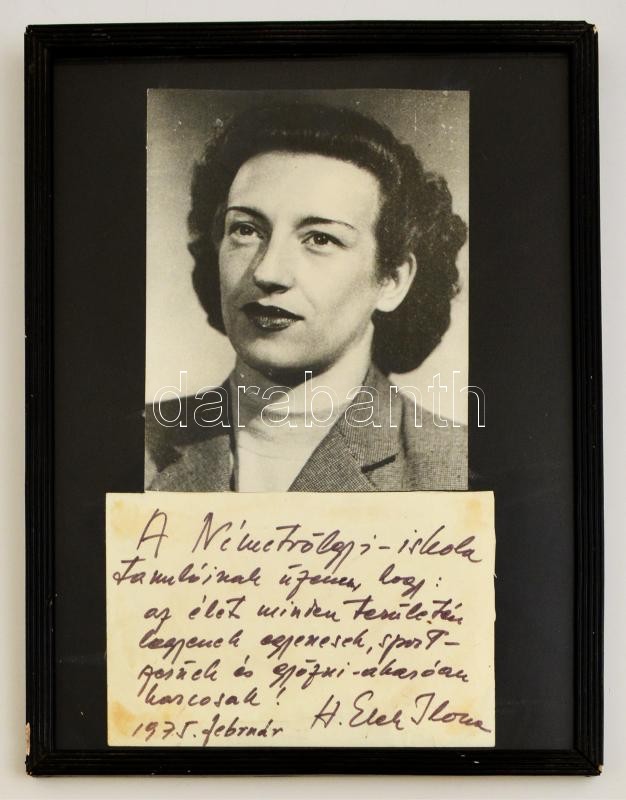 darabanth
A Németvölgyi-iskola
tanulóinak üzenem, hogy:
az élet minden területén
legyenek egyenesek, sport-
szerűek és győzni-akaróan
harcosak!
1975. február H. Elek Ilona